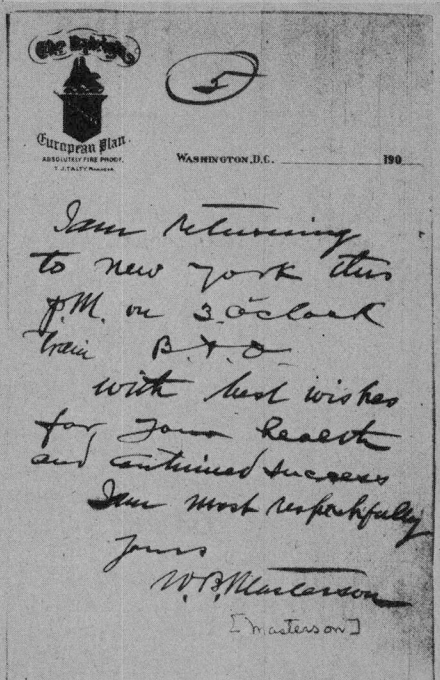 The Raleigh
European Plan.
ABSOLUTELY FIRE PROOF.
T. J. TALTY, MANAGER.
5
WASHINGTON, D.C. 190
I am returning
to new york this
p.M. on 3.o'clock
train B. & O
with best wishes
for your health
and continued success
I am most respectfully
yours
W. B. Masterson
[Masterson]